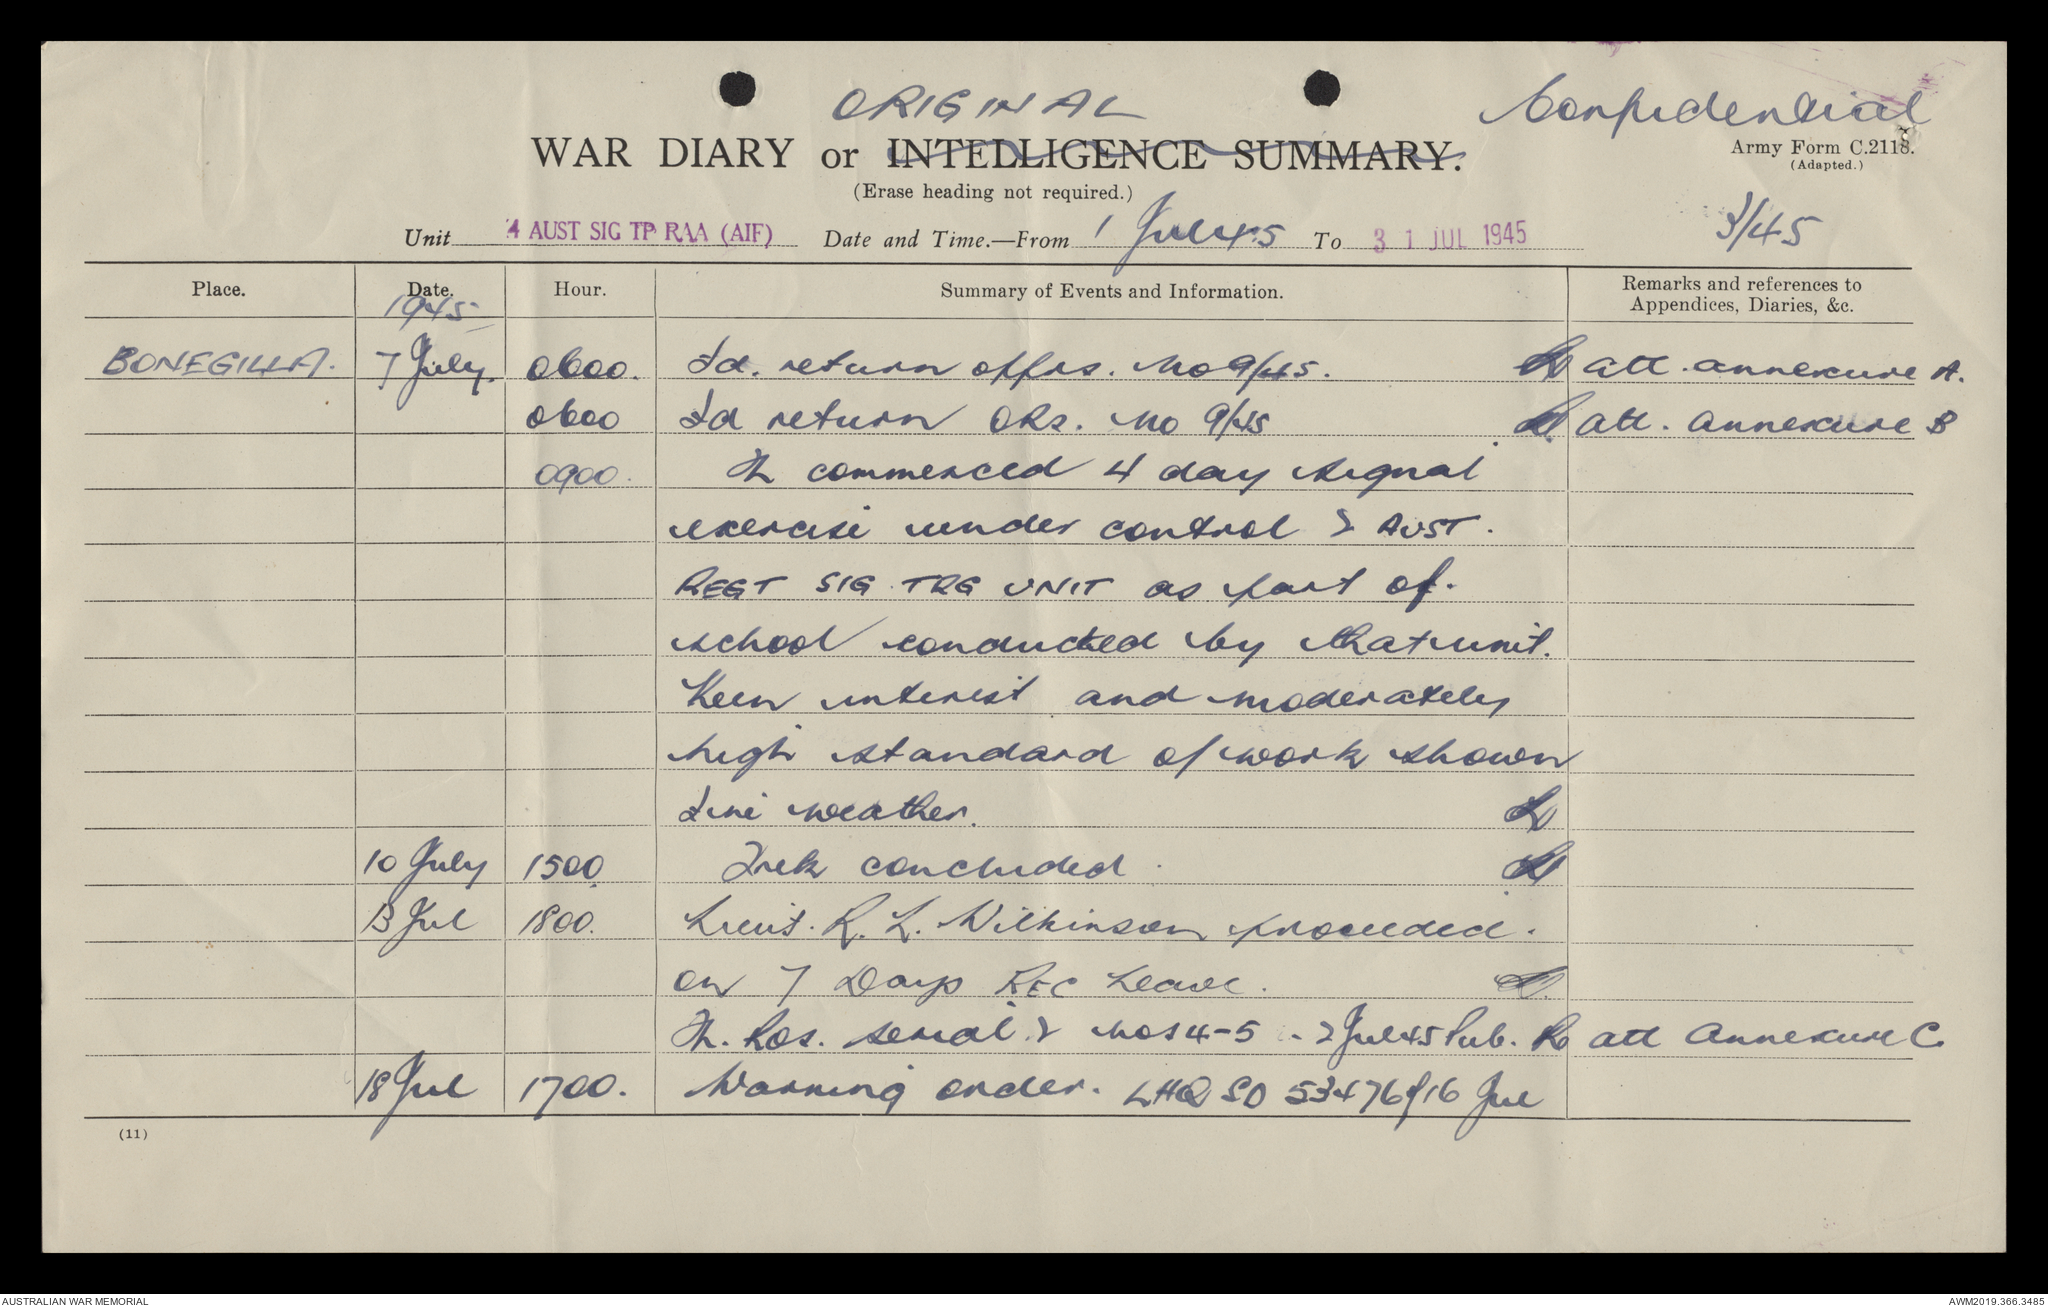 ORIGINAL
Confidential
WAR DIARY or INTELLIGENCE SUMMARY.
Army Form C.2118.
(Adapted.)
(Erase heading not required.)
Unit 4 AUST SIG TP RAA (AIF) Date and Time.—From 1 Jul 45 To 31 JUL 1945
3/45
Place. Date. Hour. Summary of Events and Information. Remarks and references to
Appendices, Diaries, &c.
1945
BONEGILLA. 7 July. 0600. Fd. return offrs. No 9/45. att. annexure A.
0600 Fd return ORs. No 9/45 att. annexure B
0900. Tp commenced 4 day signal
exercise under control 2 AUST.
REGT SIG TRG UNIT as part of.
school conducted by that unit.
Keen interest and moderately
high standard of work shown
Fine weather.
10 July 1500 Trek concluded.
13 Jul 1800. Lieut. R. L. Wilkinson proceeded.
on 7 Days REC Leave.
Tp. Ros. serial 2 Nos 4-5 - 2 Jul 45 Pub. att Annexure C.
18 Jul 1700. Warning order. LHQ SD 53476 of 16 Jul
(11)
AUSTRALIAN WAR MEMORIAL
AWM2019.366.3485